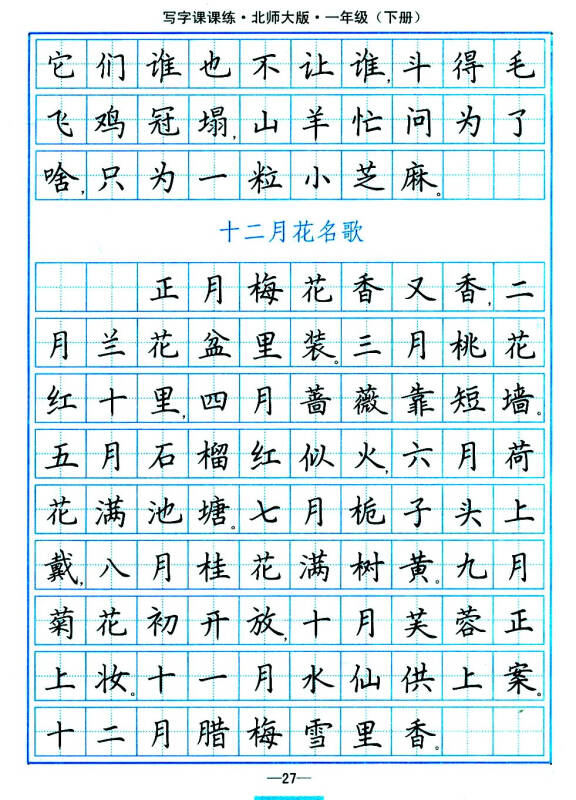 写字课课练·北师大版·一年级（下册）
它们谁也不让谁，斗得毛
飞鸡冠塌，山羊忙问为了
啥，只为一粒小芝麻。
十二月花名歌
正月梅花香又香，二
月兰花盆里装。三月桃花
红十里，四月蔷薇靠短墙。
五月石榴红似火，六月荷
花满池塘。七月栀子头上
戴，八月桂花满树黄。九月
菊花初开放，十月芙蓉正
上妆。十一月水仙供上案。
十二月腊梅雪里香。
—27—